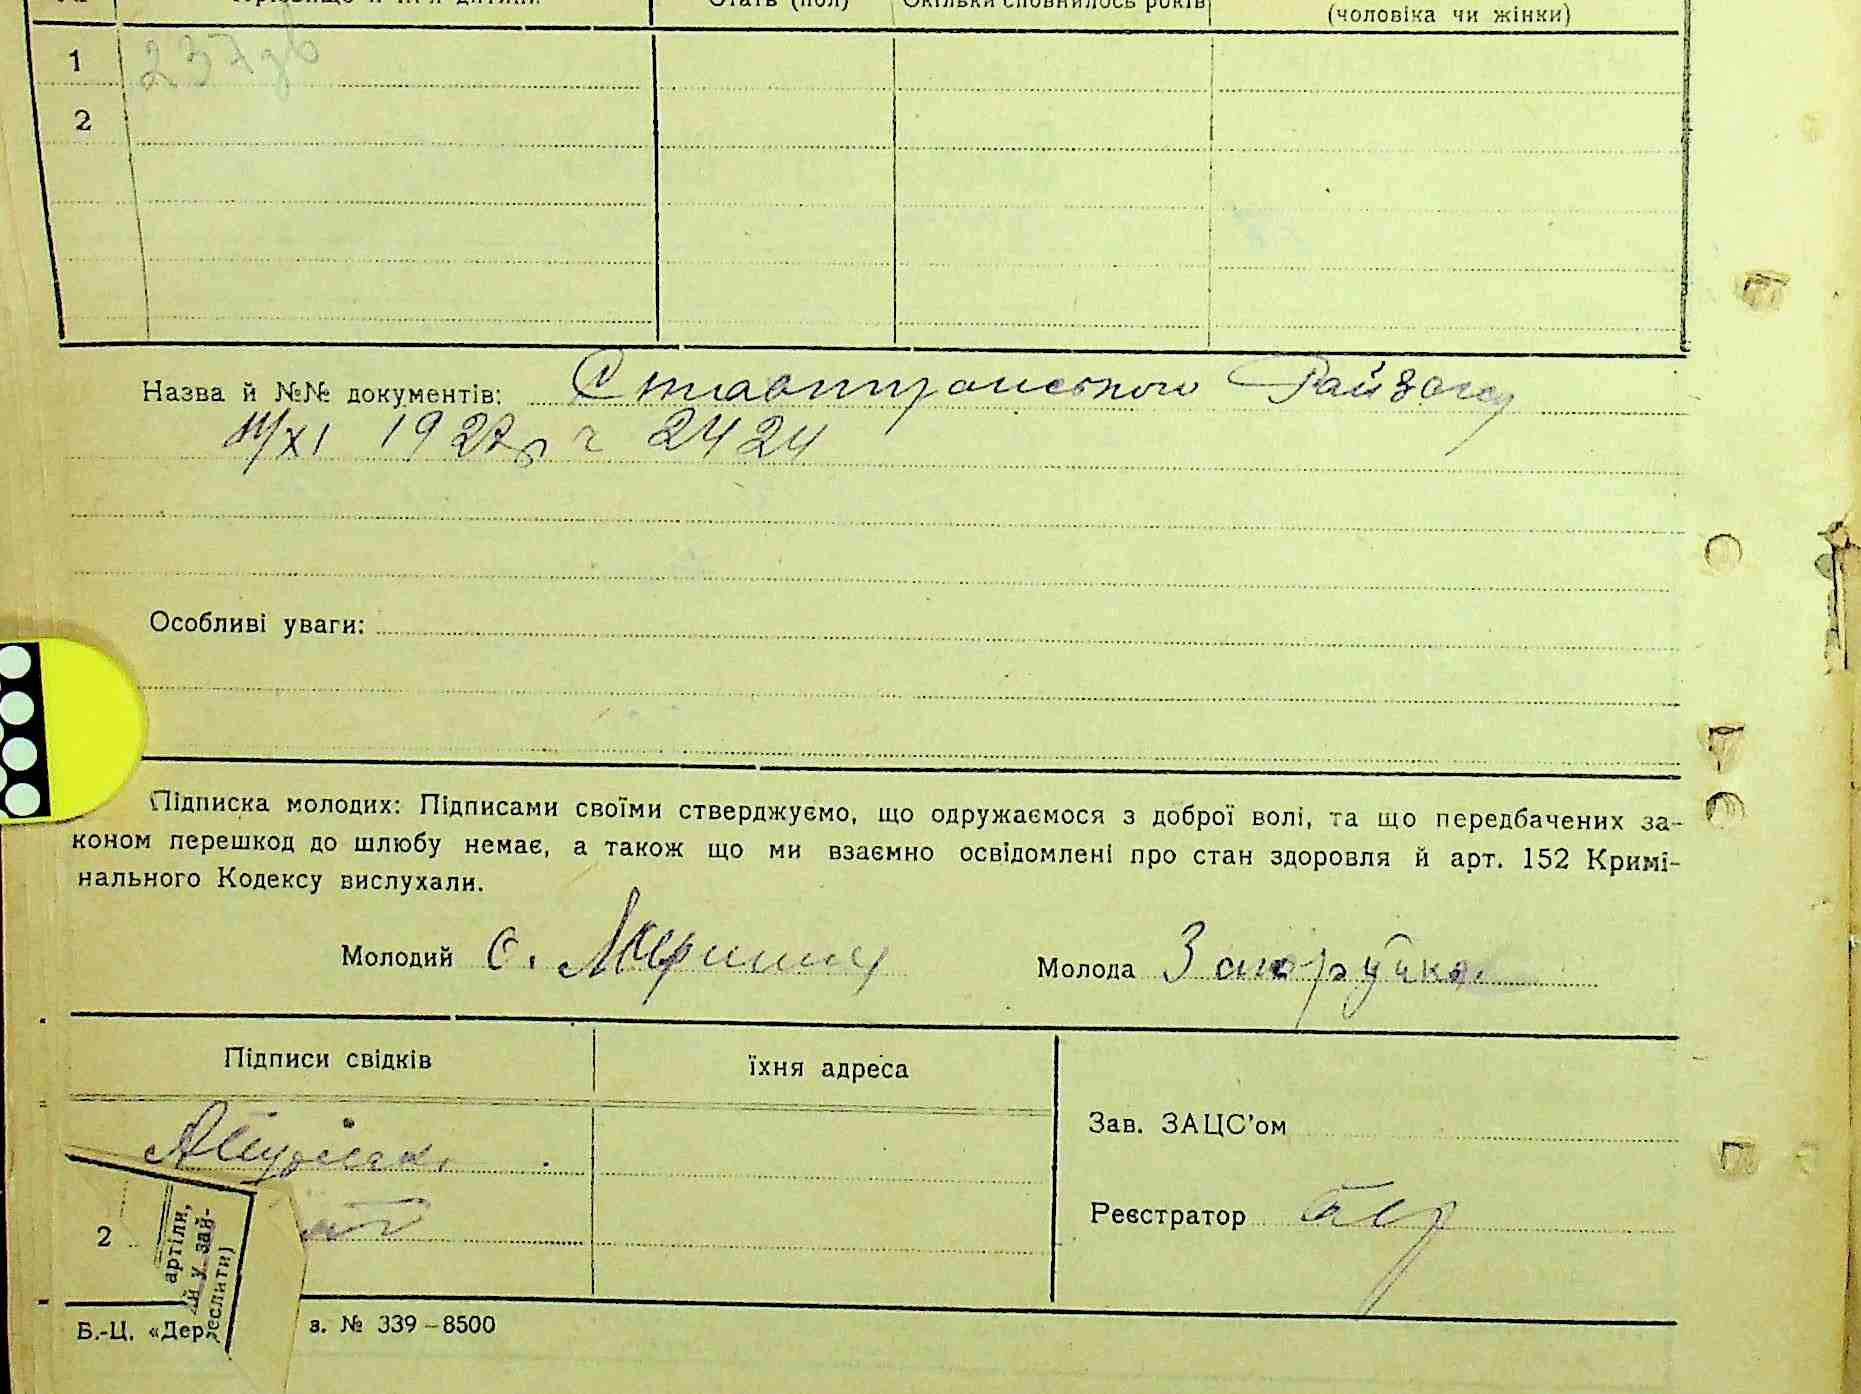 Стать (пол) Скільки сповнилось років
(чоловіка чи жінки)
1
2
Назва й №№ документів:
XI 1927р ч 2424
Особливі уваги:
Підписка молодих: Підписами своїми стверджуємо, що одружаємося з доброї волі, та що передбачених за-
коном перешкод до шлюбу немає, а також що ми взаємно освідомлені про стан здоровля й арт. 152 Кримі-
нального Кодексу вислухали.
Молодий С. Молода
Підписи свідків їхня адреса
Зав. ЗАЦС'ом
2
артіли,
й у зай-
еслити)
Реєстратор
Б.-Ц. «Дер з. № 339–8500